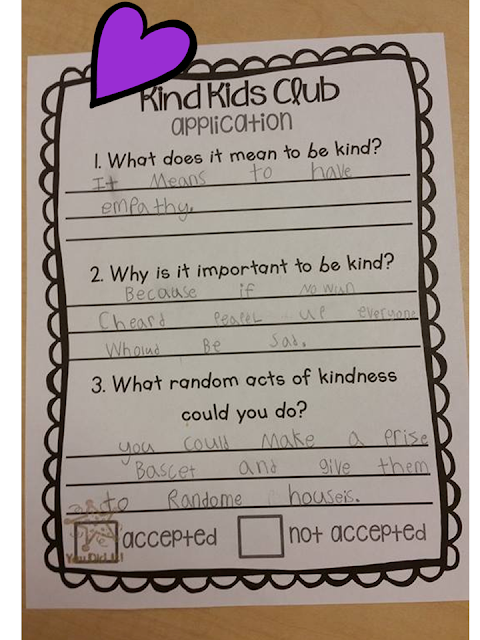 Kind Kids Club
application
1. What does it mean to be kind?
It Means to have
empathy.
2. Why is it important to be kind?
Because if no wun
Cheard Peaple up everyone
Whould Be Sad.
3. What random acts of kindness
could you do?
you could Make a prise
Bascet and give them
to Randome houseis.
accepted not accepted
You Did It!